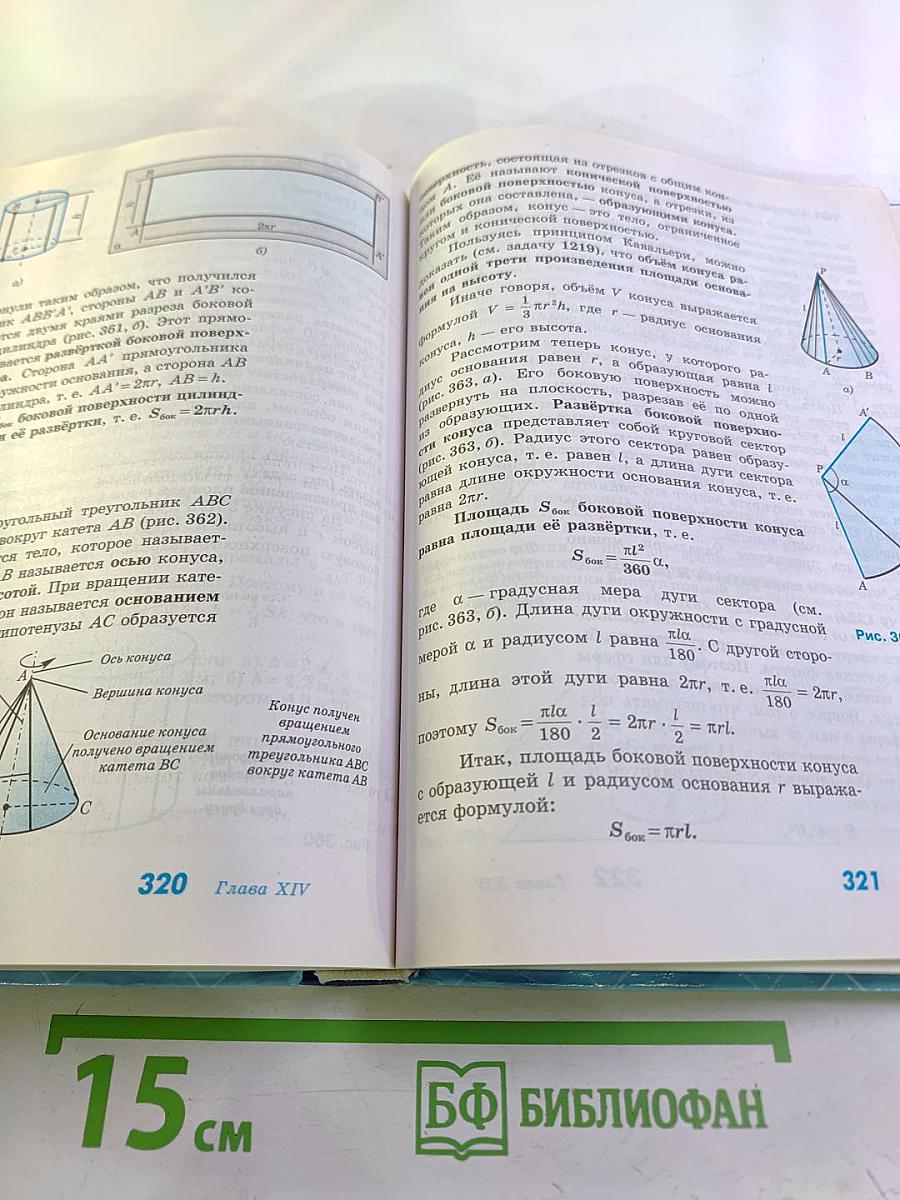 B
B'
h
h
A
A'
2πr
а)
б)
нули таким образом, что получился
ик ABB'A', стороны AB и A'B' ко-
тся двумя краями разреза боковой
цилиндра (рис. 361, б). Этот прямо-
вается развёрткой боковой поверх-
а. Сторона AA' прямоугольника
ружности основания, а сторона AB
линдра, т. е. AA' = 2πr, AB = h.
бок боковой поверхности цилинд-
и её развёртки, т. е. Sбок = 2πrh.
оугольный треугольник ABC
вокруг катета AB (рис. 362).
тся тело, которое называет-
B называется осью конуса,
сотой. При вращении кате-
он называется основанием
гипотенузы AC образуется
Ось конуса
A
Вершина конуса
Основание конуса
получено вращением
катета BC
C
Конус получен
вращением
прямоугольного
треугольника ABC
вокруг катета AB
320 Глава XIV
поверхность, состоящая из отрезков с общим кон-
цом A. Её называют конической поверхностью
или боковой поверхностью конуса, а отрезки, из
которых она составлена, — образующими конуса.
Таким образом, конус — это тело, ограниченное
кругом и конической поверхностью.
Пользуясь принципом Кавальери, можно
доказать (см. задачу 1219), что объём конуса ра-
вен одной трети произведения площади основа-
ния на высоту.
Иначе говоря, объём V конуса выражается
формулой V = 1/3 πr²h, где r — радиус основания
конуса, h — его высота.
Рассмотрим теперь конус, у которого ра-
диус основания равен r, а образующая равна l
(рис. 363, а). Его боковую поверхность можно
развернуть на плоскость, разрезав её по одной
из образующих. Развёртка боковой поверхно-
сти конуса представляет собой круговой сектор
(рис. 363, б). Радиус этого сектора равен образу-
ющей конуса, т. е. равен l, а длина дуги сектора
равна длине окружности основания конуса, т. е.
равна 2πr.
Площадь Sбок боковой поверхности конуса
равна площади её развёртки, т. е.
Sбок = πl²/360 α,
где α — градусная мера дуги сектора (см.
рис. 363, б). Длина дуги окружности с градусной
мерой α и радиусом l равна πlα/180. С другой сторо-
ны, длина этой дуги равна 2πr, т. е. πlα/180 = 2πr,
поэтому Sбок = πlα/180 · l/2 = 2πr · l/2 = πrl.
Итак, площадь боковой поверхности конуса
с образующей l и радиусом основания r выража-
ется формулой:
Sбок = πrl.
P
l
r
A
B
а)
A'
l
P
α
l
A
Рис. 3
321
15 см
БФ БИБЛИОФАН